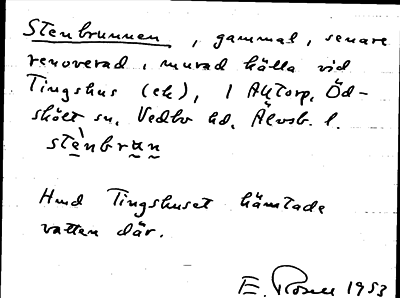 Stenbrunnen, gammal, senare
renoverad, murad källa vid
Tingshus (ek), 1 Al̤torp, Öd-
skölt sn, Vedbo hd, Älvsb. l.
stènbrun
Hud Tingshuset hämtade
vatten där.
E. Rosell 1953